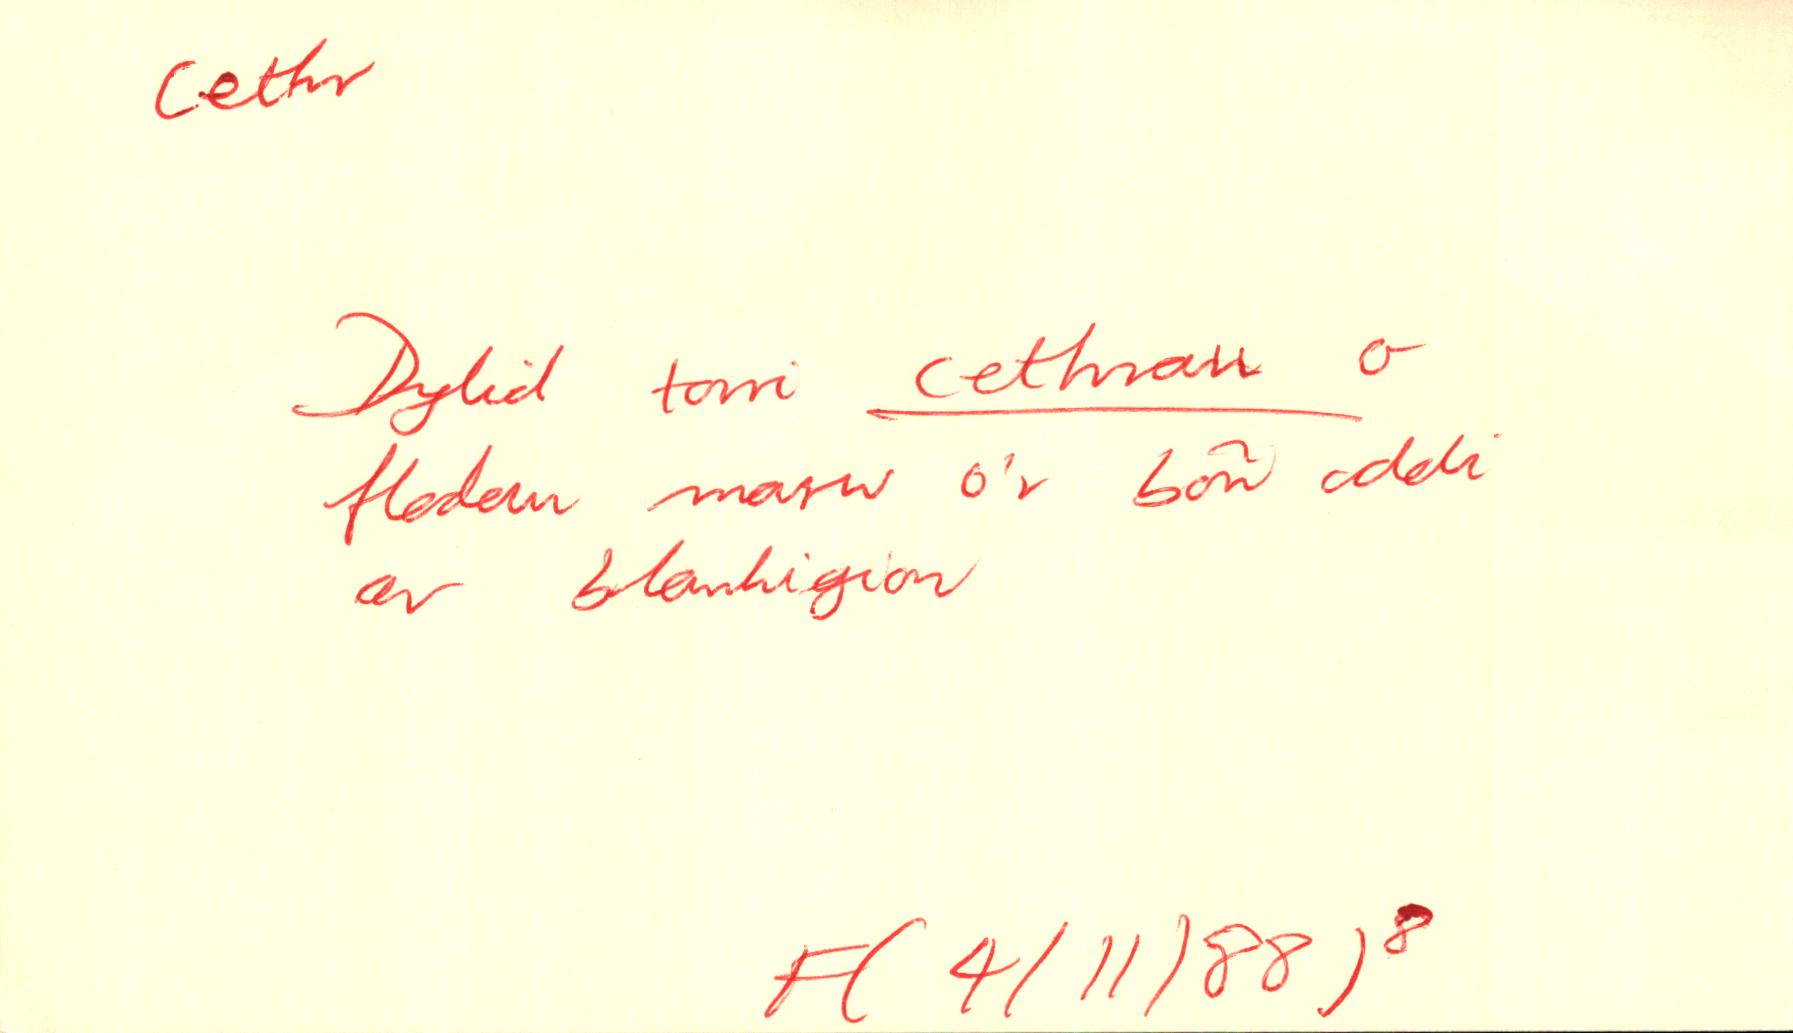 Cethr
Dylid torri cethrau o
flodau marw o'r bon̄ addi
ar blanhigion
F(4/11/88)8